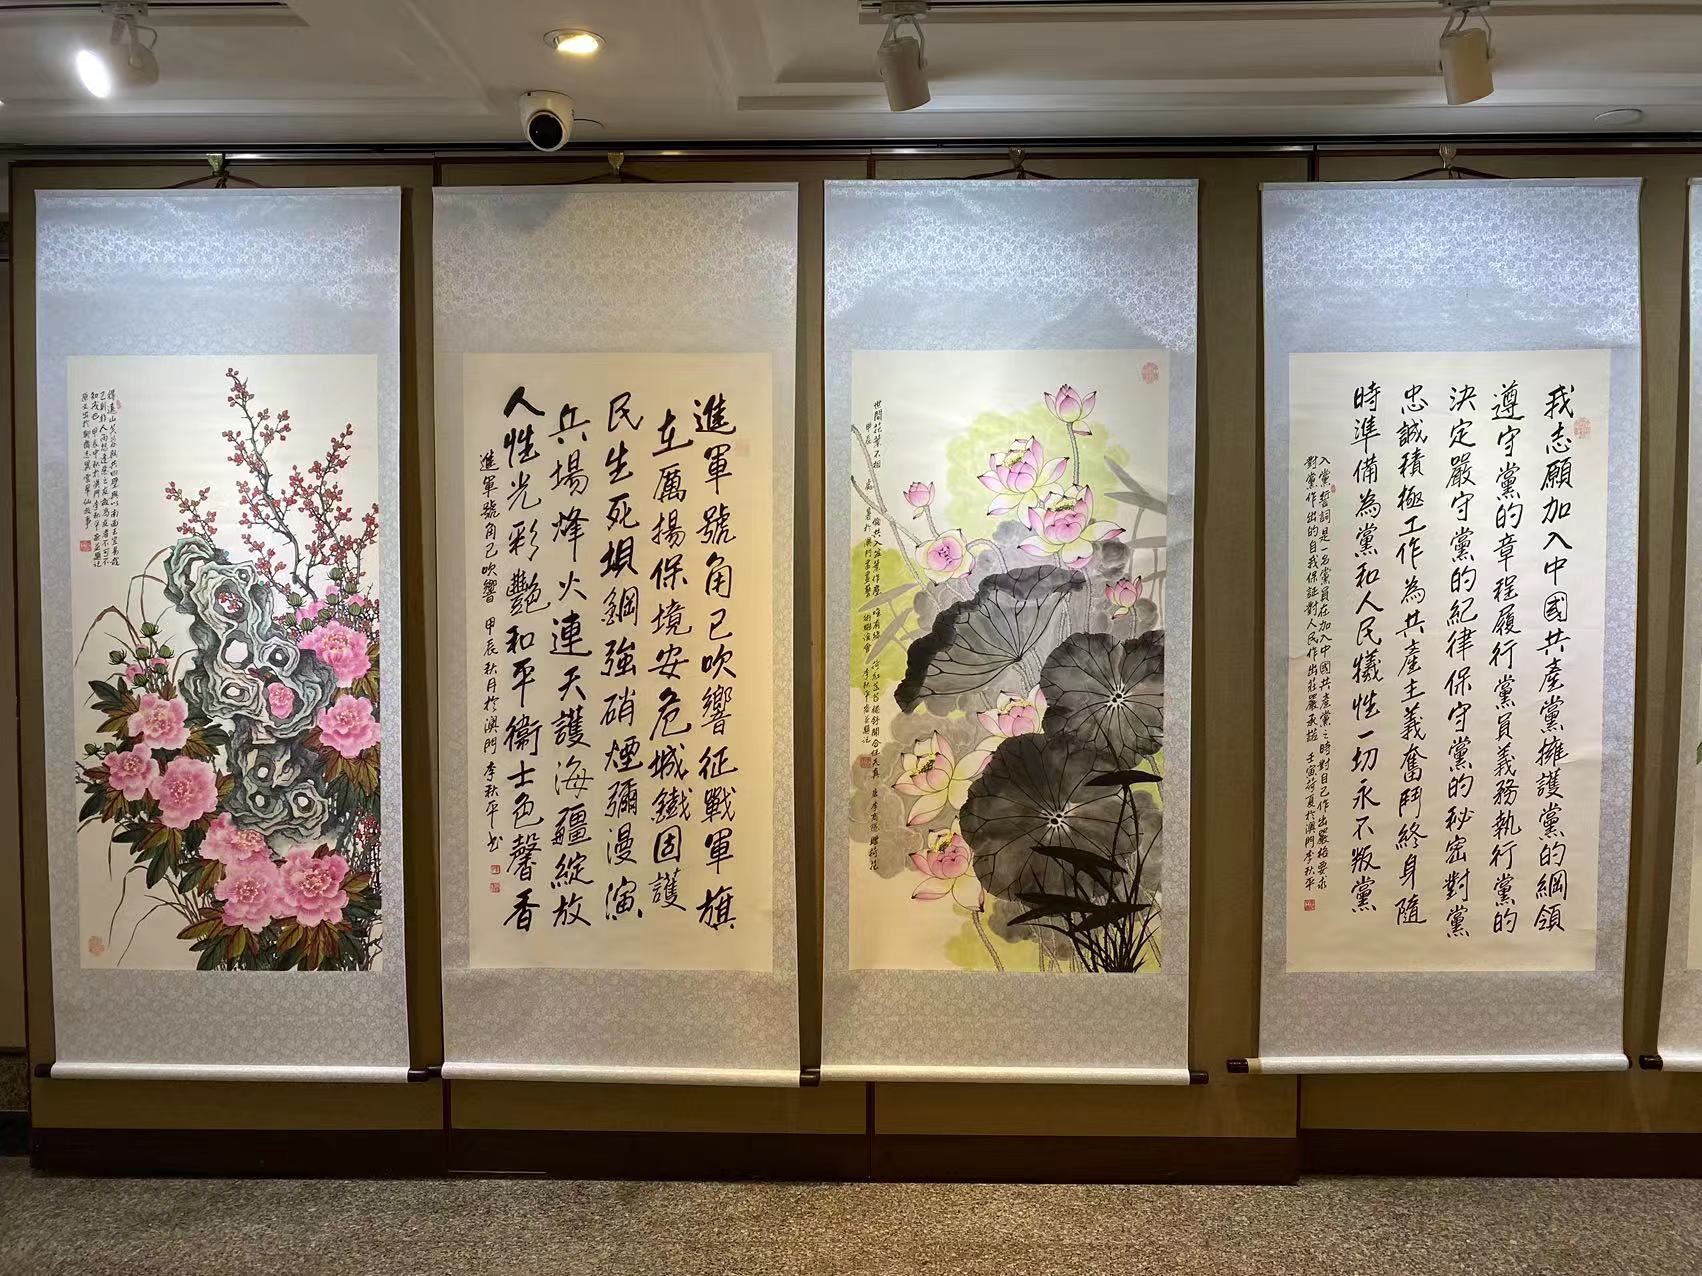 我志願加入中國共產黨擁護黨的綱領
遵守黨的章程履行黨員義務執行黨的
決定嚴守黨的紀律保守黨的秘密對黨
忠誠積極工作為共產主義奮鬥終身隨
時準備為黨和人民犧牲一切永不叛黨
入黨誓詞是一名黨員在加入中國共產黨之時對自己作出嚴格要求
對黨作出的自我保証對人民作出莊嚴承諾 壬寅荷夏於澳門李秋平
世間花葉不相
倫共入金盆葉作塵 唯有綠荷紅菡萏捲舒開合任天真 唐李商隱贈荷花
甲辰
進軍號角已吹響征戰軍旗
立厲揚保境安危城鐵固護
民生死垻鋼強硝煙彌漫演
兵場烽火連天護海疆綻放
人性光彩艷和平衞士色馨香
進軍號角已吹響 甲辰秋月於澳門 李秋平书